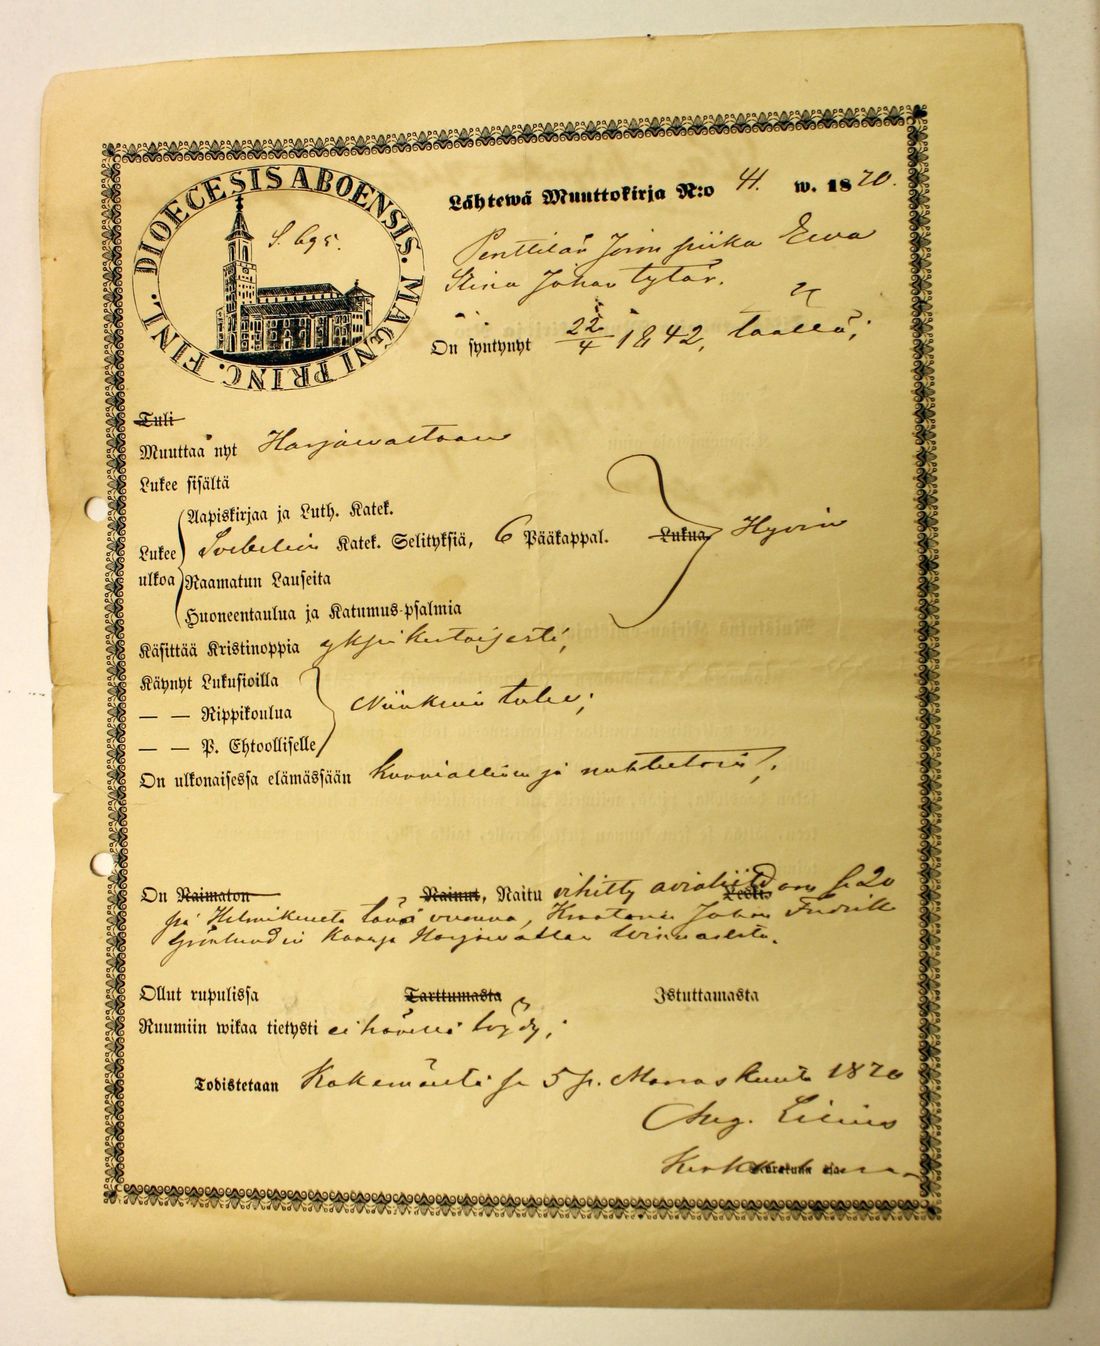 DIOECESIS ABOENSIS. MAGNI PRINC. FINL.
S. 695.
Lähtewä Muuttokirja N:o 41. w. 1870.
Penttilän Joon piika Eewa
Stina Johan tytär.
On syntynyt 22/4 1842, täällä;
Tuli
Muuttaa nyt Harjawaltaan
Lukee sisältä
Aapiskirjaa ja Luth. Katek.
Lukee Svebelein Katek. Selityksiä, 6 Pääkappal. Lukua Hyvin
ulkoa Raamatun Lauseita
Huoneentaulua ja Katumus-psalmia
Käsittää Kristinoppia yksinkertaisesti,
Käynyt Lukusioilla
— — Rippikoulua Niinkuin tulee;
— — P. Ehtoolliselle
On ulkonaisessa elämässään kunniallinen ja nuhteetoin;
On Naimaton Nainut, Naitu vihitty avioliittoon Leski se 20
p:ä Helmikuuta tänä vuonna, Johan Fredrik
Grönlundin kanssa Harjawallan
Ollut rupulissa Tarttumasta Istuttamasta
Ruumiin wikaa tietysti ei hänellä löydy;
Todistetaan Kokemäeltä se 5 p. Marraskuuta 1870
Aug. Lilius
Kirkkoherra